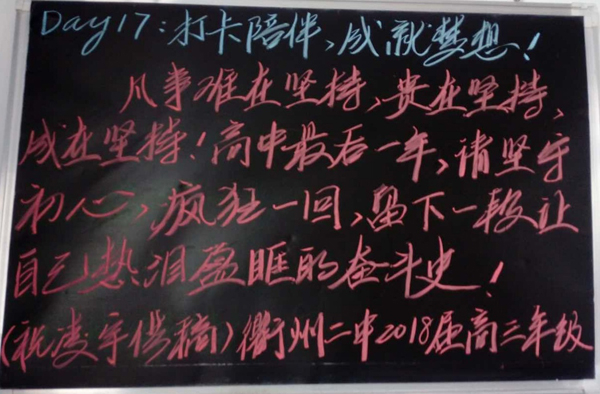 Day17:打卡陪伴、成就梦想!
凡事难在坚持,贵在坚持,
成在坚持!高中最后一年,请坚守
初心,疯狂一回,留下一段让
自己热泪盈眶的奋斗史!
(祝凌宇供稿)衢州二中2018届高三年级